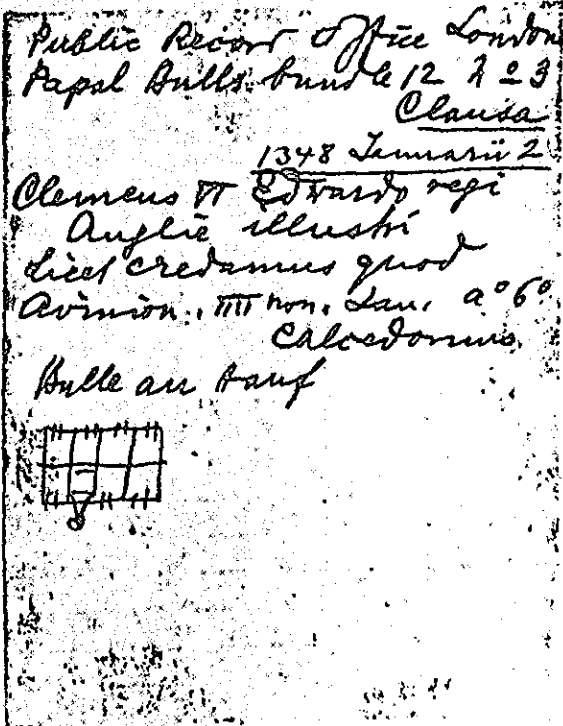 Public Record Office London
Papal Bulls bundle 12 No 3
Clausa
1348 Januarii 2
Clemens VI Edwardo regi
Anglie illustri
Licet credamus quod
Avinion., IIII non. Jan. a° 6°
Calcedonius.
Bulle an Hanf